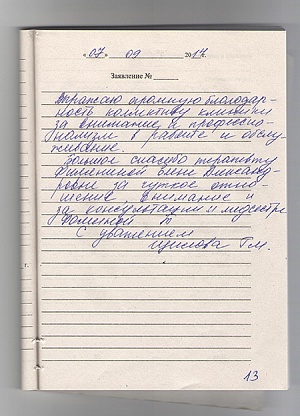 « 07 » 09 2017 г.
Заявление № ______
Выражаю огромную благодар-
ность коллективу клиники
за внимание и профессио-
нализм в работе и обслу-
живание.
Большое спасибо терапевту
Елене Александ
ровне за чуткое отно-
шение внимание и
за консультации и медсестре
С уважением
13